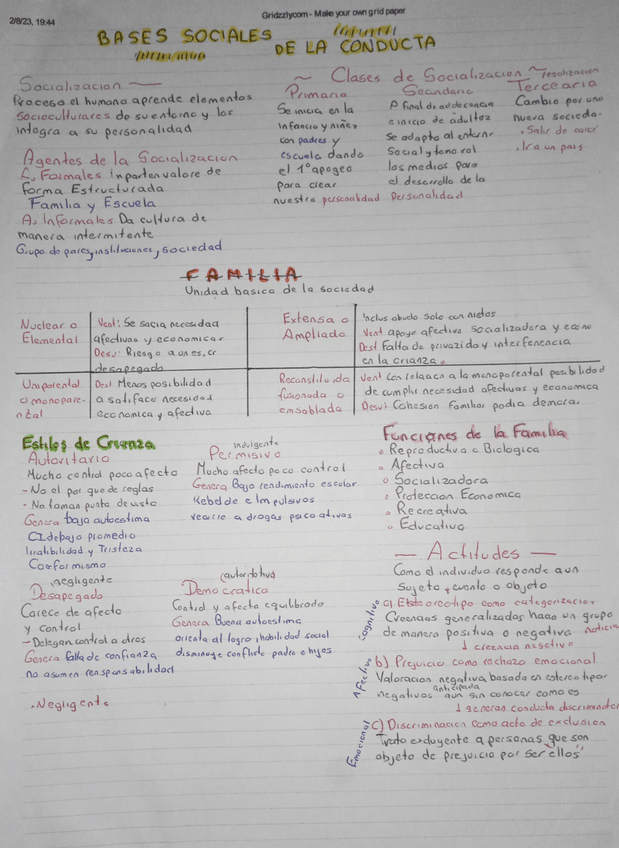 2/8/23, 19:44
Gridzzlycom - Make your own grid paper
BASES SOCIALES
DE LA CONDUCTA
Socializacion
Proceso el humano aprende elementos
Socioculturares de su entorno y los
integra a su personalidad
Agentes de la Socializacion
A. Formales Inparten valore de
forma Estructurada
Familia y Escuela
A. Informales Da cultura de
manera intermitente
Grupo de pares, instituciones, sociedad
Clases de Socializacion
Primaria
Se inicia en la
infancia y niñez
con padres y
escuela dando
el 1° apogeo
para crear
nuestra personalidad
Secundaria
A final de adolescencia
e inicio de adultez
se adapta al entorno
Social y toma rol
los medios para
el desarrollo de la
Personalidad
resocializacion
Terceraria
Cambio por una
nueva socieda-
. Salir de carcel
. Ir a un pais
FAMILIA
Unidad basica de la sociedad
Nuclear o
Elemental
Vent: Se sacia necesidad
afectivas y economicas
Desv: Riesgo a un es, cr
desapegado
Extensa o
Ampliada
Inclus abuelo solo con nietos
Vent Apoyo afectivo socializadora y econo
Dest Falta de privazida y interferencia
en la crianza.
Uniparental
o monopare-
ntal
Dest Menos posibilidad
a satiface necesidad
economica y afectiva
Reconstituida
fusionada o
ensablada
Vent Con relaaco a la monoparental posibilidad
de cumplir necesidad afectivas y economica
Desv: Cohesion Familiar podia demora.
Estilos de Crianza
Autoritario
Mucho control poco afecto
- No el por que de reglas
- No toman punto de vista
Genera baja autoestima
CI debajo promedio
Irratibilidad y Tristeza
Conformismo
indulgente
Permisivo
Mucho afecto poco control
Genera Bajo rendimiento escolar
Rebelde e Impulsivos
recurre a drogas psicoativos
negligente
Desapegado
Carece de afecto
y control
- Delegan control a otros
Genera falta de confianza
no asumen responsabilidad
. Negligente
(autoritativo)
Democratico
Control y afecto equilibrado
Genera Buena autoestima
orienta al logro, habilidad social
disminuye conflicto padre e hijos
Funciones de la Familia
Reproductiva o Biologica
Afectiva
Socializadora
Proteccion Economica
Recreativa
Educativa
Actitudes
Como el individuo responde a un
Sujeto, evento o objeto
Cognitivo
a) Estereotipo como categorizacion
Creencias generalizadas hacia un grupo
de manera positiva o negativa
noticia
↓ creencia negativo
Afectivo
b) Prejuicio como rechazo emocional
Valoracion negativa basada en estereotipos
negativos anticipada aun sin conocer como es
↓ generan conducta discriminator
Emocional
c) Discriminacion como acto de exclusion
Trato excluyente a personas que son
objeto de prejuicio por ser "ellos"